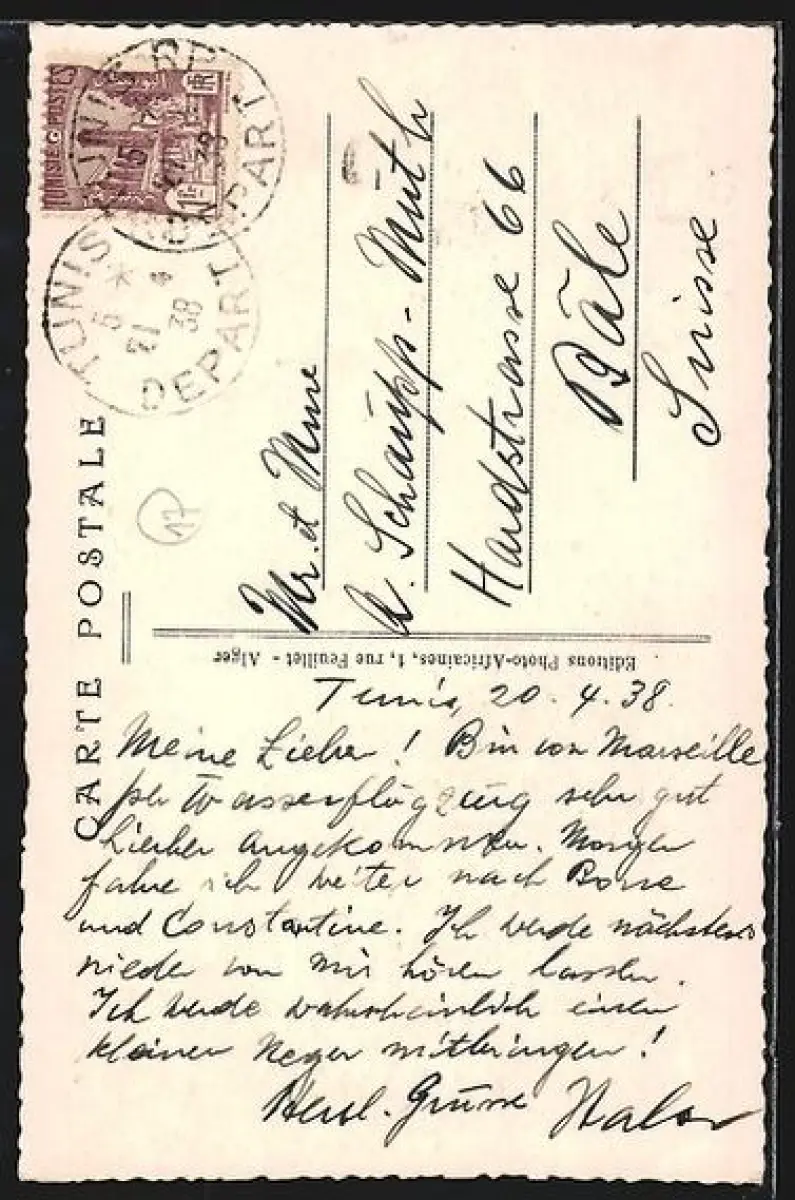 TUNISIE POSTES
RF
1F
TUNIS R.P.
DEPART
TUNIS
5
21 4
38
DEPART
CARTE POSTALE
17
Mr. et Mme
A. Schaupp-Müth
Hardstrasse 66
Bâle
Suisse
Editions Photo-Africaines, 1, rue Feuillet - Alger
Tunis, 20. 4. 38.
Meine Lieben! Bin von Marseille
per Wasserflugzeug sehr gut
hierher angekommen. Morgen
fahre ich weiter nach Bone
und Constantine. Ich werde nächstens
wieder von mir hören lassen.
Ich werde wahrscheinlich einen
kleinen Neger mitbringen!
Herzl. Grüsse